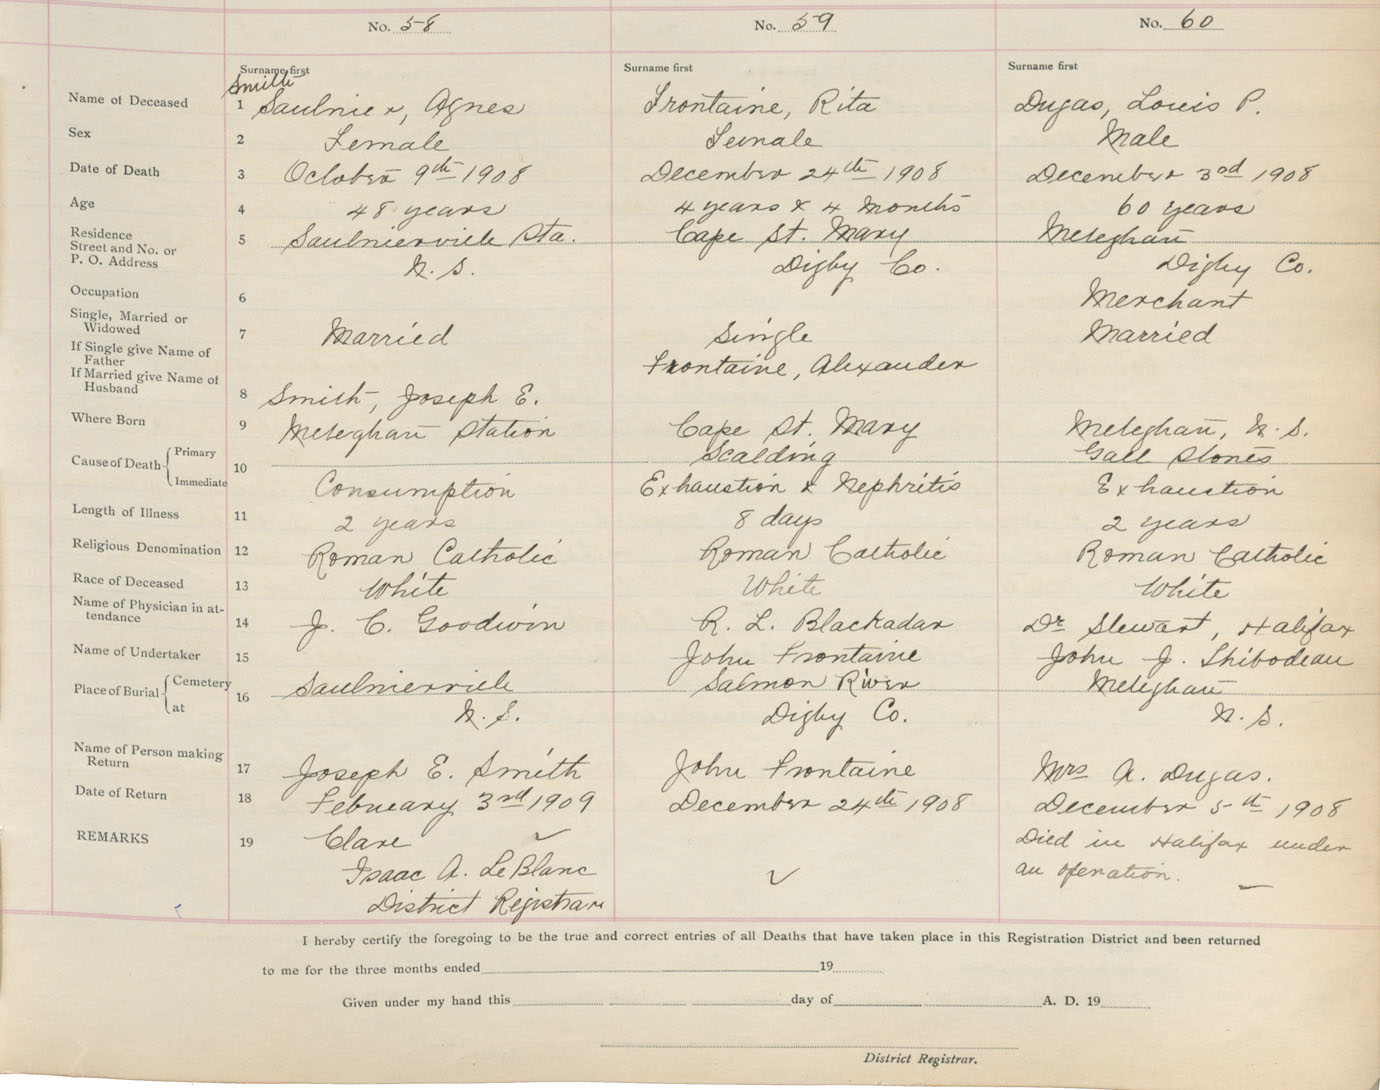 No. 58 No. 59 No. 60
Surname first Surname first Surname first
Smith
Name of Deceased 1 Saulnier, Agnes Frontaine, Rita Dugas, Louis P.
Sex 2 Female Female Male
Date of Death 3 October 9th 1908 December 24th 1908 December 3rd 1908
Age 4 48 years 4 years & 4 Months 60 years
Residence
Street and No. or 5 Saulnierville Sta. Cape St. Mary Meteghan
P. O. Address N. S. Digby Co. Digby Co.
Occupation 6 Merchant
Single, Married or
Widowed 7 Married Single Married
If Single give Name of
Father Frontaine, Alexander
If Married give Name of
Husband 8 Smith, Joseph E.
Where Born 9 Meteghan Station Cape St. Mary Meteghan, N. S.
Cause of Death Primary 10 Scalding Gall Stones
Immediate Consumption Exhaustion & Nephritis Exhaustion
Length of Illness 11 2 years 8 days 2 years
Religious Denomination 12 Roman Catholic Roman Catholic Roman Catholic
Race of Deceased 13 White White White
Name of Physician in at-
tendance 14 J. C. Goodwin R. L. Blackadar Dr Stewart, Halifax
Name of Undertaker 15 John Frontaine John J. Thibodeau
Place of Burial Cemetery 16 Saulnierville Salmon River Meteghan
at N. S. Digby Co. N. S.
Name of Person making
Return 17 Joseph E. Smith John Frontaine Mrs A. Dugas.
Date of Return 18 February 3rd 1909 December 24th 1908 December 5th 1908
REMARKS 19 Clare Died in Halifax under
Isaac A. LeBlanc an operation.
District Registrar
I hereby certify the foregoing to be the true and correct entries of all Deaths that have taken place in this Registration District and been returned
to me for the three months ended 19
Given under my hand this day of A. D. 19
District Registrar.